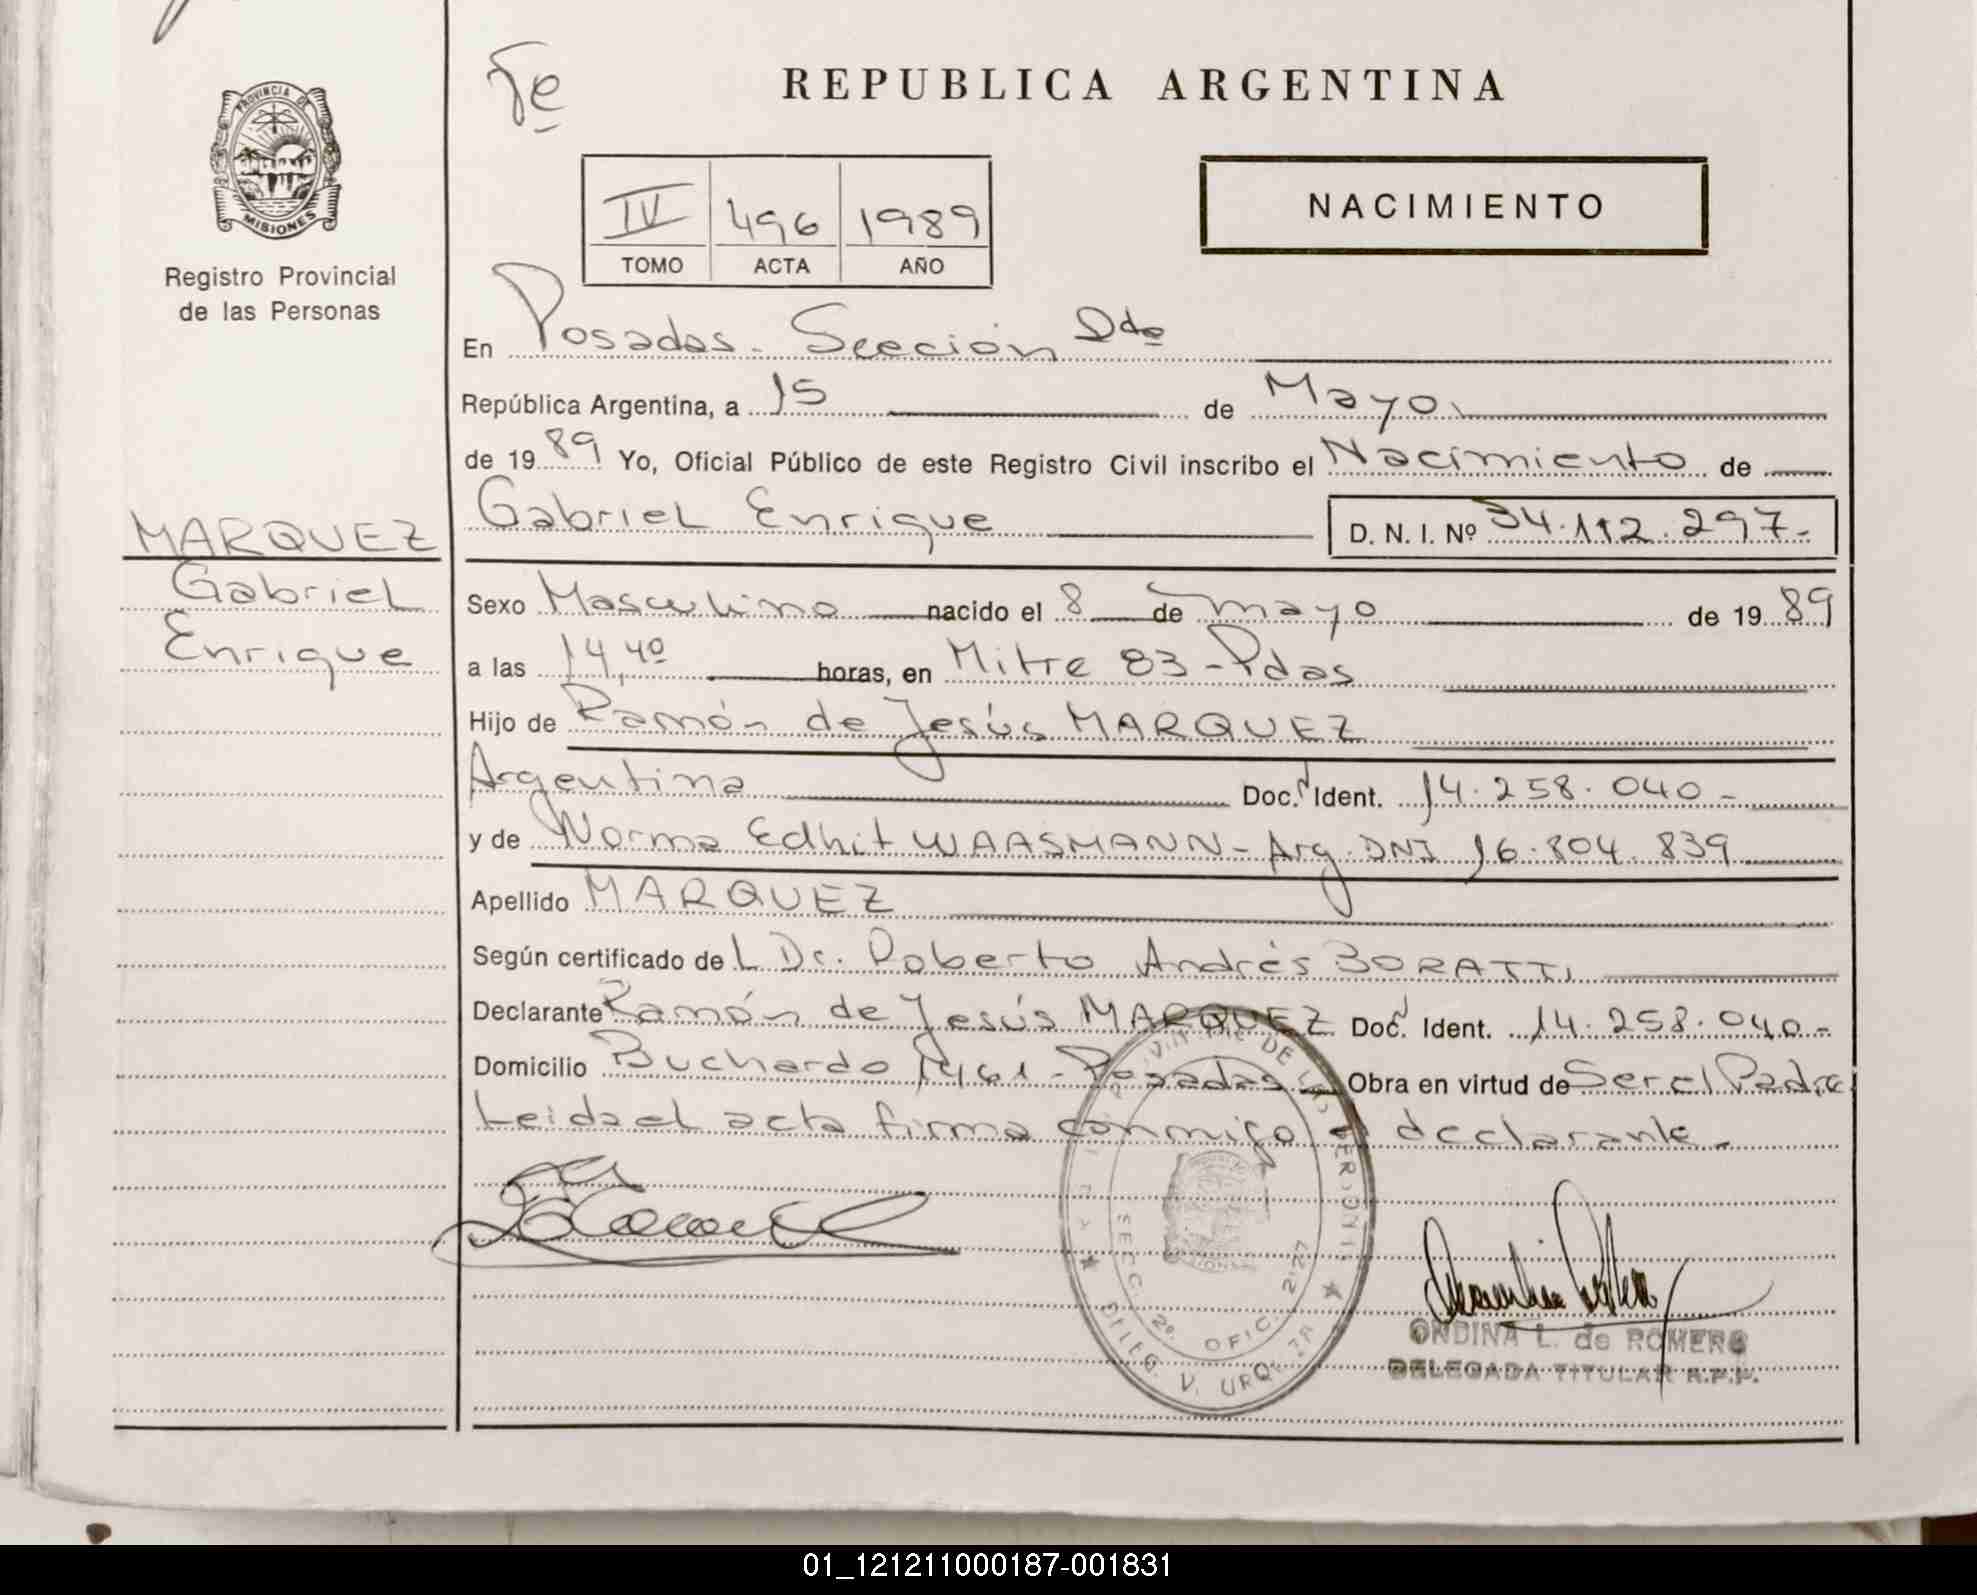 Fe
REPUBLICA ARGENTINA
PROVINCIA DE
MISIONES
Registro Provincial
de las Personas
IV 496 1989
TOMO ACTA AÑO
NACIMIENTO
En Posadas - Sección 2da
República Argentina, a 15 de Mayo
de 1989 Yo, Oficial Público de este Registro Civil inscribo el Nacimiento de
Gabriel Enrique
D. N. I. Nº 34.112.297.-
MARQUEZ
Gabriel
Enrique
Sexo Masculino nacido el 8 de mayo de 1989
a las 14,40 horas, en Mitre 83 - Pdas
Hijo de Ramón de Jesús MARQUEZ
Argentina Doc. Ident. 14.258.040-
y de Norma Edhit WAASMANN - Arg. DNI 16.804.839
Apellido MARQUEZ
Según certificado del Dr. Roberto Andrés BORATTI
Declarante Ramón de Jesús MARQUEZ Doc. Ident. 14.258.040-
Domicilio Buchardo 1461 - Posadas - Obra en virtud de Ser el Padre
Leida el acta firma conmigo el declarante.
SECC. 2º. OFIC. 2127
DELEG. V. URQUIZA
ONDINA L. de ROMERO
DELEGADA TITULAR R.P.P.
01_121211000187-001831